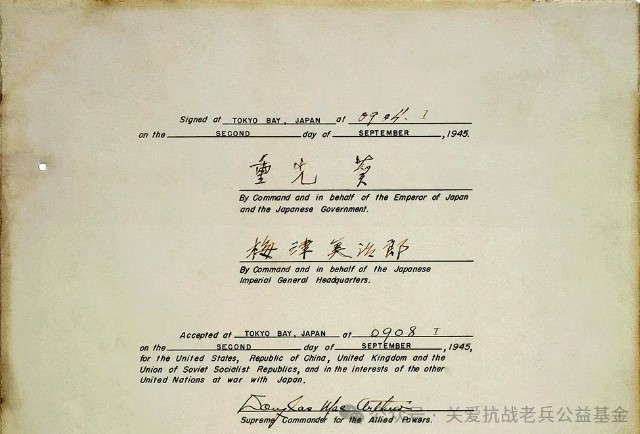 Signed at TOKYO BAY, JAPAN at 0904 I
on the SECOND day of SEPTEMBER, 1945.
重光 葵
By Command and in behalf of the Emperor of Japan
and the Japanese Government.
梅津美治郎
By Command and in behalf of the Japanese
Imperial General Headquarters.
Accepted at TOKYO BAY, JAPAN at 0908 I
on the SECOND day of SEPTEMBER, 1945,
for the United States, Republic of China, United Kingdom and the
Union of Soviet Socialist Republics, and in the interests of the other
United Nations at war with Japan.
Douglas MacArthur
公众号 · 关爱抗战老兵公益基金
Supreme Commander for the Allied Powers.